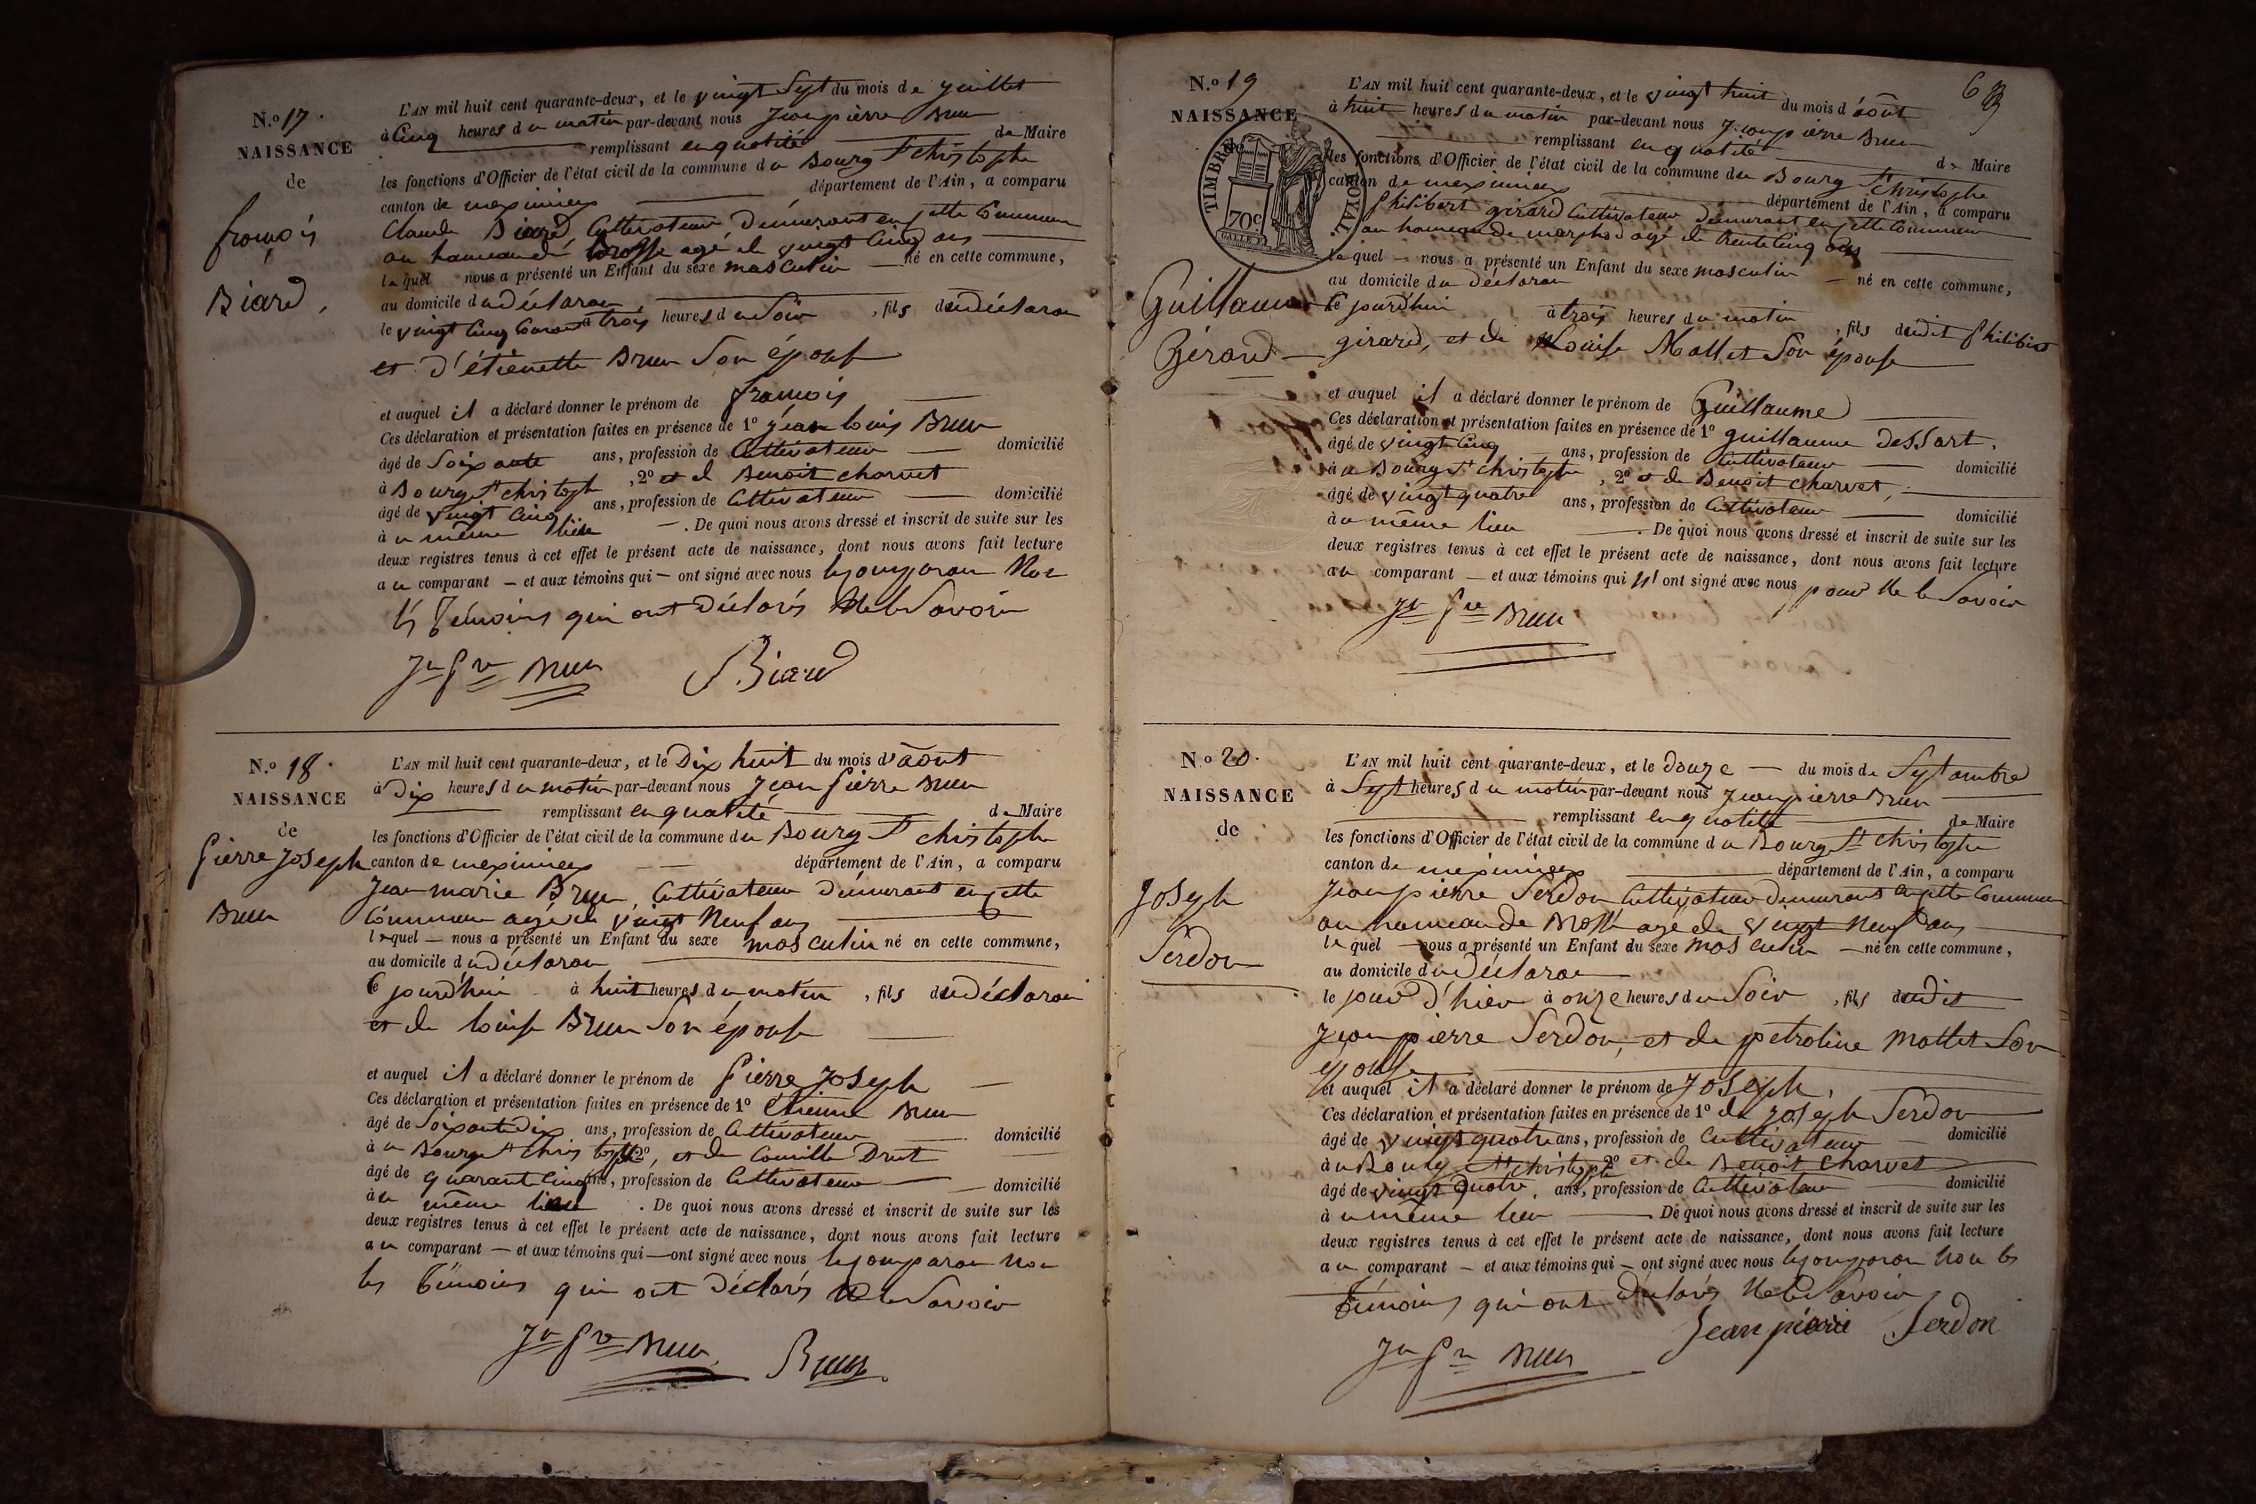 N.o 17.
NAISSANCE
de
françois
Biard,
L'AN mil huit cent quarante-deux, et le vingt Sept du mois de juillet
à Cinq heures du matin par-devant nous jean pierre Brun
remplissant en qualité de Maire
les fonctions d'Officier de l'état civil de la commune du Bourg St christophe
canton de meximieux département de l'Ain, a comparu
Claude Biard Cultivateur demeurant en cette Commune
au hameau de Brosse agé de vingt Cinq ans
lequel nous a présenté un Enfant du sexe masculin né en cette commune,
au domicile du déclaran
le vingt Cinq Courant à trois heures du Soir, fils du déclaran
et d'étienette Brun Son épouse
et auquel il a déclaré donner le prénom de françois
Ces déclaration et présentation faites en présence de 1o jean louis Brun
âgé de Soixante ans, profession de Cultivateur domicilié
à Bourg St christophe, 2o et de Benoit charvet
âgé de vingt Cinq ans, profession de Cultivateur domicilié
à u même lieu. De quoi nous avons dressé et inscrit de suite sur les
deux registres tenus à cet effet le présent acte de naissance, dont nous avons fait lecture
au comparant et aux témoins qui ont signé avec nous le comparan Non
les Témoins qui ont Déclarés Ne le Savoir
Jn Pre Brun Biard
N.o 18.
NAISSANCE
de
Pierre Joseph
Brun
L'AN mil huit cent quarante-deux, et le Dix huit du mois d'août
à Dix heures du matin par-devant nous Jean Pierre Brun
remplissant en qualité de Maire
les fonctions d'Officier de l'état civil de la commune du Bourg St christophe
canton de meximieux département de l'Ain, a comparu
Jean marie Brun, Cultivateur Demeurant en cette
Commune agé de vingt Neuf ans
lequel nous a présenté un Enfant du sexe masculin né en cette commune,
au domicile du déclaran
Ce jourd'hui à huit heures du matin, fils du déclaran
et de louise Brun Son épouse
et auquel il a déclaré donner le prénom de Pierre Joseph
Ces déclaration et présentation faites en présence de 1o étienne Brun
âgé de Soixante dix ans, profession de Cultivateur domicilié
à u Bourg St christophe 2o, et de Camille Drut
âgé de quarant Cinq ans, profession de Cultivateur domicilié
à u même lieu. De quoi nous avons dressé et inscrit de suite sur les
deux registres tenus à cet effet le présent acte de naissance, dont nous avons fait lecture
au comparant et aux témoins qui ont signé avec nous le comparan Non
les Témoins qui ont Déclarés Ne le Savoir
Jn Pre Brun Brun
N.o 19
NAISSANCE
TIMBRE ROYAL
70 c.
Guillaume
Gérard
6
L'AN mil huit cent quarante-deux, et le vingt huit du mois d'août
à huit heures du matin par-devant nous Jean pierre Brun
remplissant en qualité de Maire
les fonctions d'Officier de l'état civil de la commune du Bourg St christophe
canton de meximieux département de l'Ain, a comparu
Philibert girard Cultivateur demeurant en cette Commune
au hameau de marphod agé de trente Cinq ans
lequel nous a présenté un Enfant du sexe masculin né en cette commune,
au domicile du déclaran
Ce jourd'hui à trois heures du matin, fils dudit Philibert
girard, et de Louise Mollet Son épouse
et auquel il a déclaré donner le prénom de Guillaume
Ces déclaration et présentation faites en présence de 1o guillaume Dessart,
âgé de vingt Cinq ans, profession de Cultivateur domicilié
à u Bourg St christophe, 2o et de Benoit charvet,
âgé de vingt quatre ans, profession de Cultivateur domicilié
à u même lieu. De quoi nous avons dressé et inscrit de suite sur les
deux registres tenus à cet effet le présent acte de naissance, dont nous avons fait lecture
au comparant et aux témoins qui n'ont signé avec nous pour Ne le Savoir
Jn Pre Brun
No 20.
NAISSANCE
de
Joseph
Serdon
L'AN mil huit cent quarante-deux, et le douze du mois de Septambre
à Sept heures du matin par-devant nous Jean pierre Brun
remplissant en qualité de Maire
les fonctions d'Officier de l'état civil de la commune du Bourg St christophe
canton de meximieux département de l'Ain, a comparu
Jean pierre Serdon Cultivateur demeurant en cette Commune
au hameau de agé de vingt Neuf ans
lequel nous a présenté un Enfant du sexe masculin né en cette commune,
au domicile du déclaran
le jour d'hier à onze heures du Soir, fils dudit
Jean pierre Serdon, et de petroline Mollet Son
épouse
et auquel il a déclaré donner le prénom de Joseph,
Ces déclaration et présentation faites en présence de 1o de Joseph Serdon
âgé de vingt quatre ans, profession de Cultivateur domicilié
à u Bourg St christophe 2o et de Benoit charvet
âgé de vingt Quatre, ans, profession de Cultivateur domicilié
à u même lieu De quoi nous avons dressé et inscrit de suite sur les
deux registres tenus à cet effet le présent acte de naissance, dont nous avons fait lecture
au comparant et aux témoins qui ont signé avec nous le comparan Non les
Témoins qui ont Déclarés Ne le Savoir
Jn Pre Brun Jean pierre Serdon